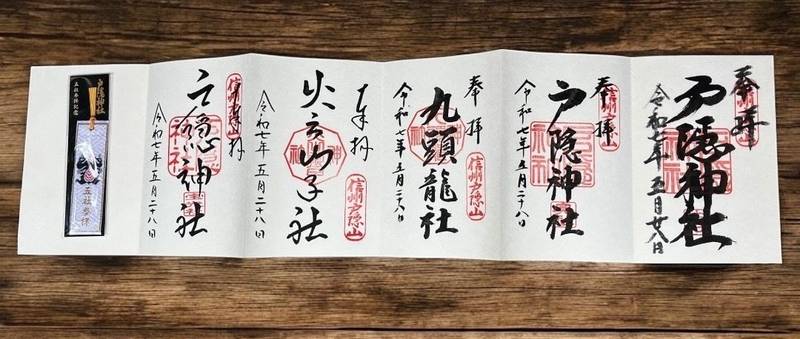 奉拝
戸隠神社
令和七年 五月廿八日
奉拝
信州戸隠山
戸隠神社
令和七年五月二十八日
奉拝
信州戸隠山
九頭龍社
令和七年五月二十八日
奉拝
信州戸隠山
火之御子社
令和七年五月二十八日
奉拝
戸隠神社
令和七年五月二十八日
戸隠神社
五社参拝記念
五社参拝